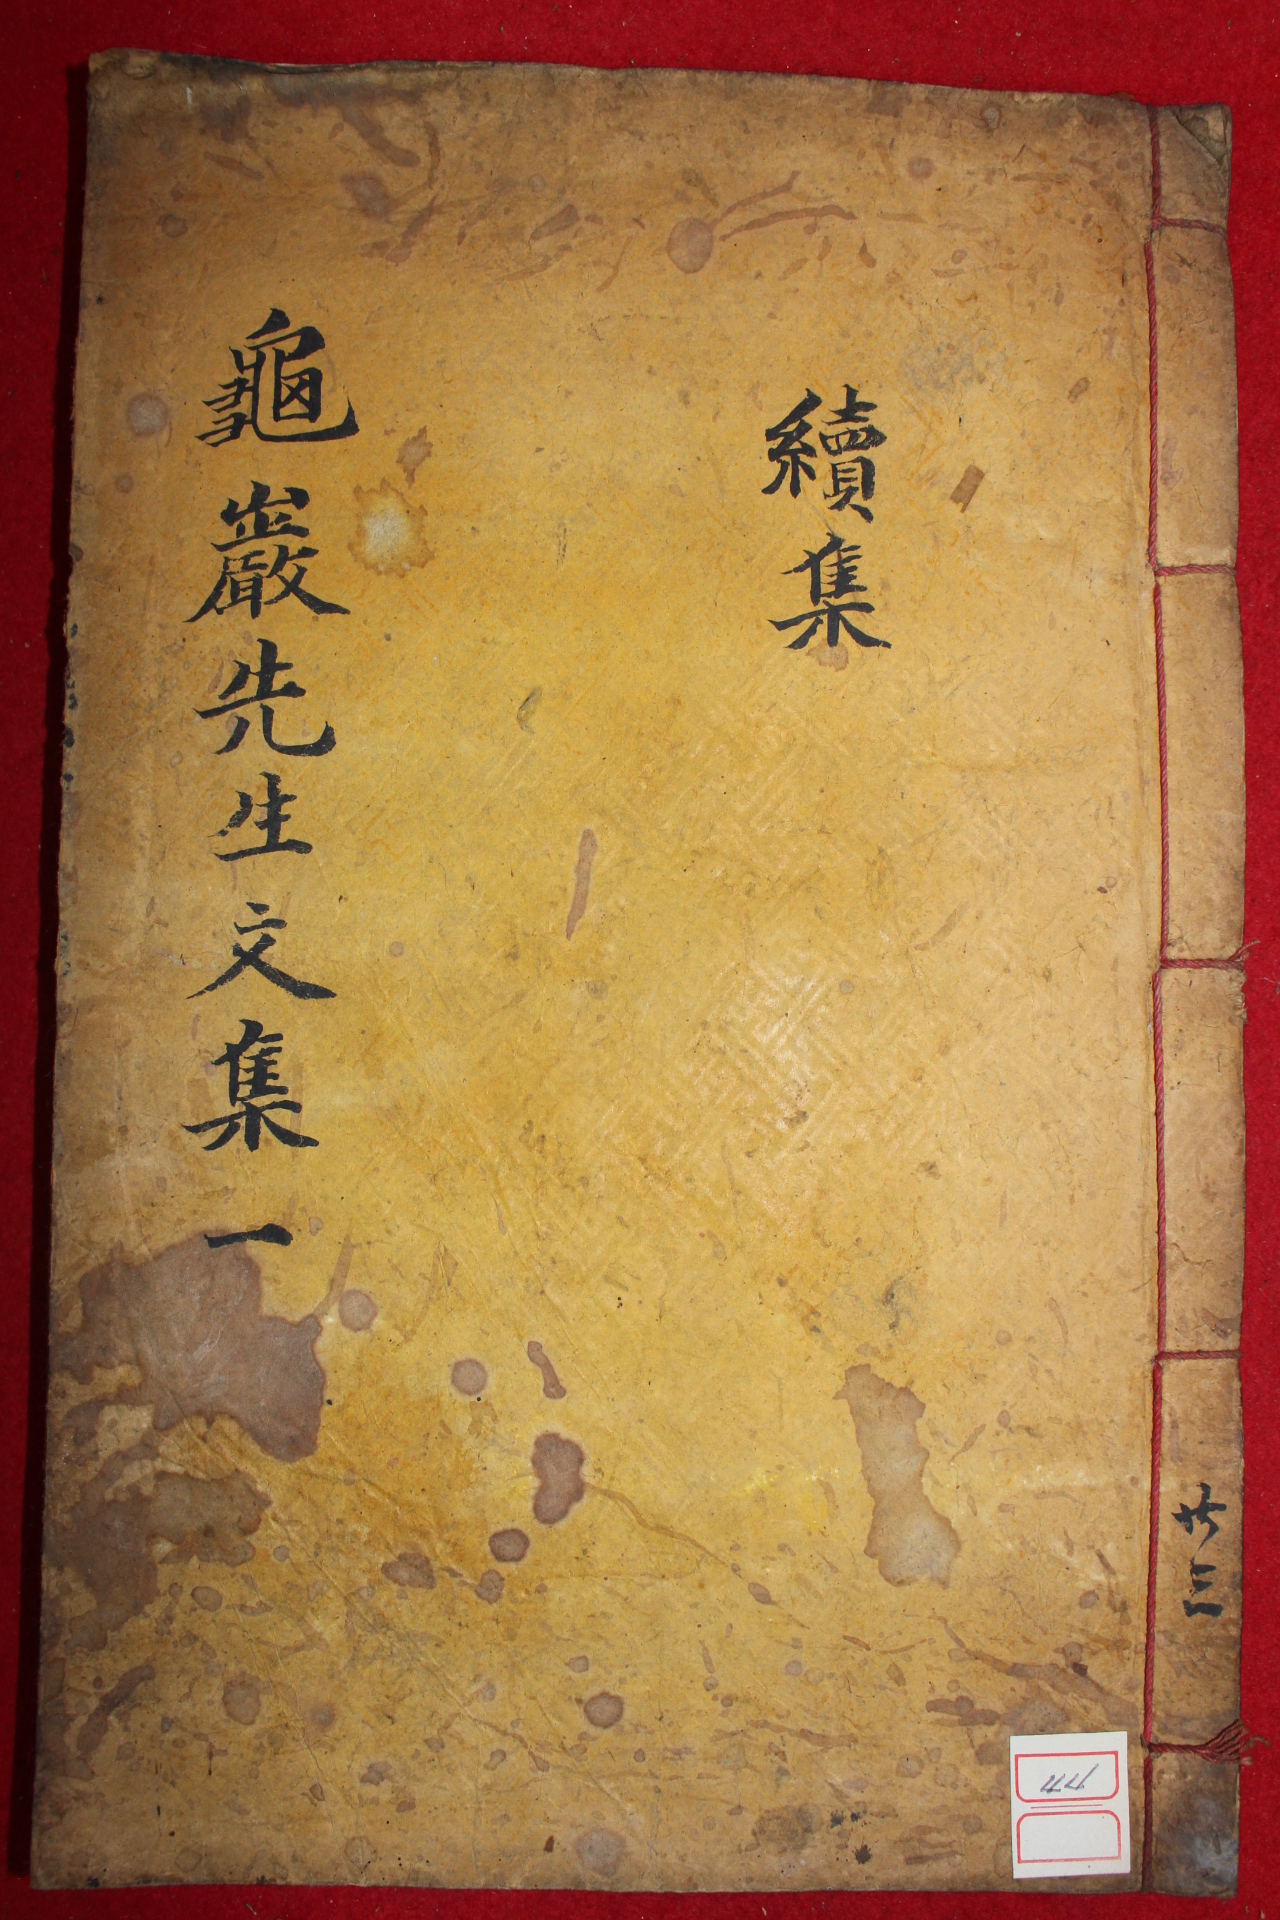 續集
龜巖先生文集一
共三